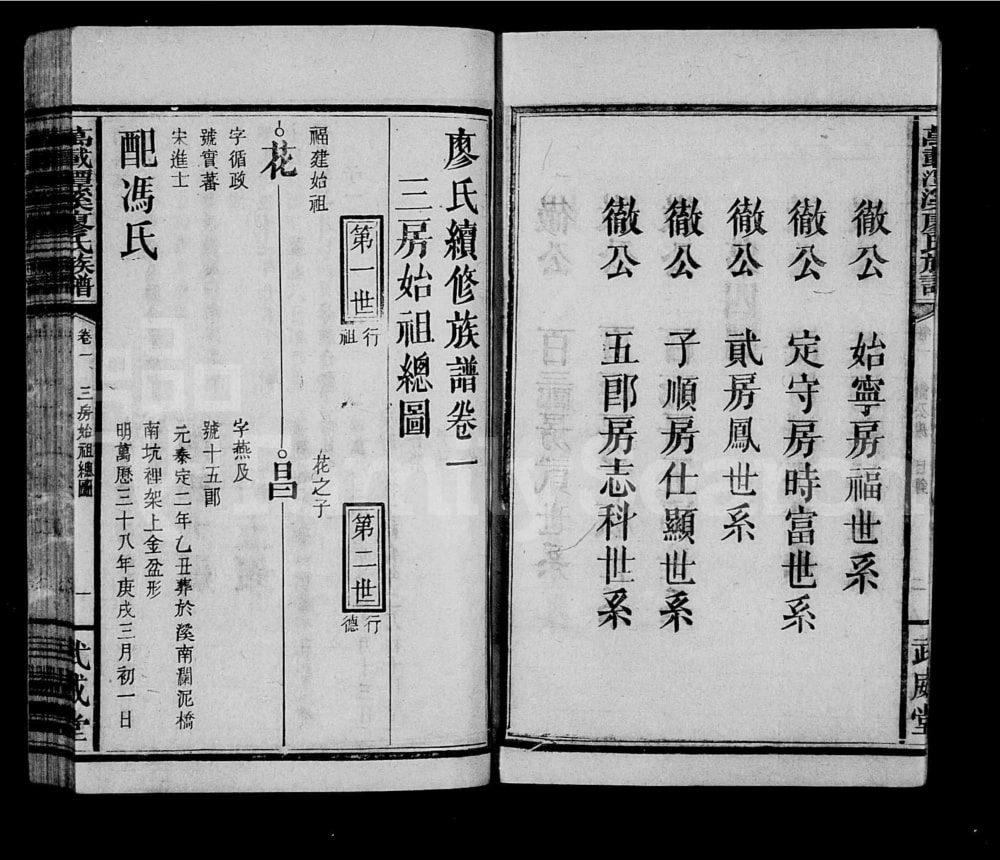 徹公 始寧房福世系
徹公 定守房時富世系
徹公 貳房鳳世系
徹公 子順房仕顯世系
徹公 五郎房志科世系
武威堂
廖氏續修族譜卷一
三房始祖總圖
第一世 行祖
第二世 行德
福建始祖
花
字循政
號實蕃
宋進士
配馮氏
花之子
昌
字燕及
號十五郎
元泰定二年乙丑葬於溪南瀾泥橋
南坑裡架上金盆形
明萬曆三十八年庚戌三月初一日
萬載潭溪廖氏族譜 卷一 三房始祖總圖 一 武威堂